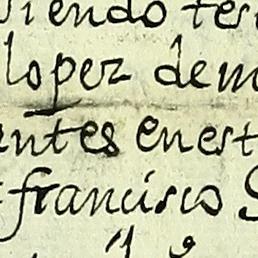 viendo tes
lopez dem
entes enest
francisco S